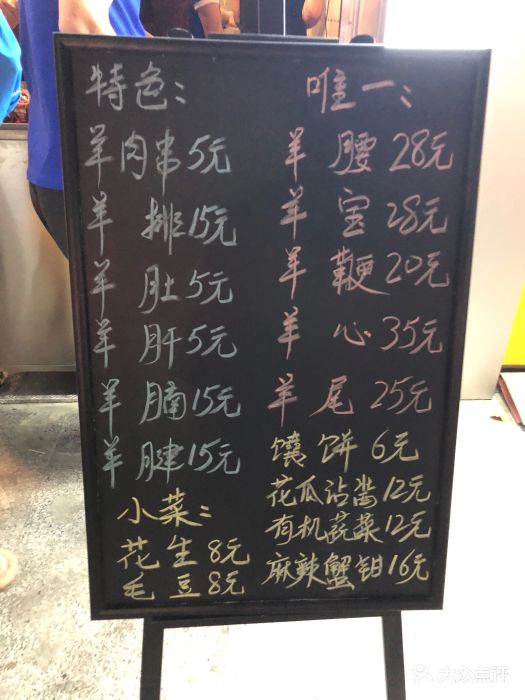 特色:
羊肉串5元
羊排15元
羊肚5元
羊肝5元
羊腩15元
羊腱15元
小菜:
花生8元
毛豆8元
唯一:
羊腰28元
羊宝28元
羊鞭20元
羊心35元
羊尾25元
馕饼6元
花瓜沾酱12元
有机蔬菜12元
麻辣蟹钳16元
大众点评